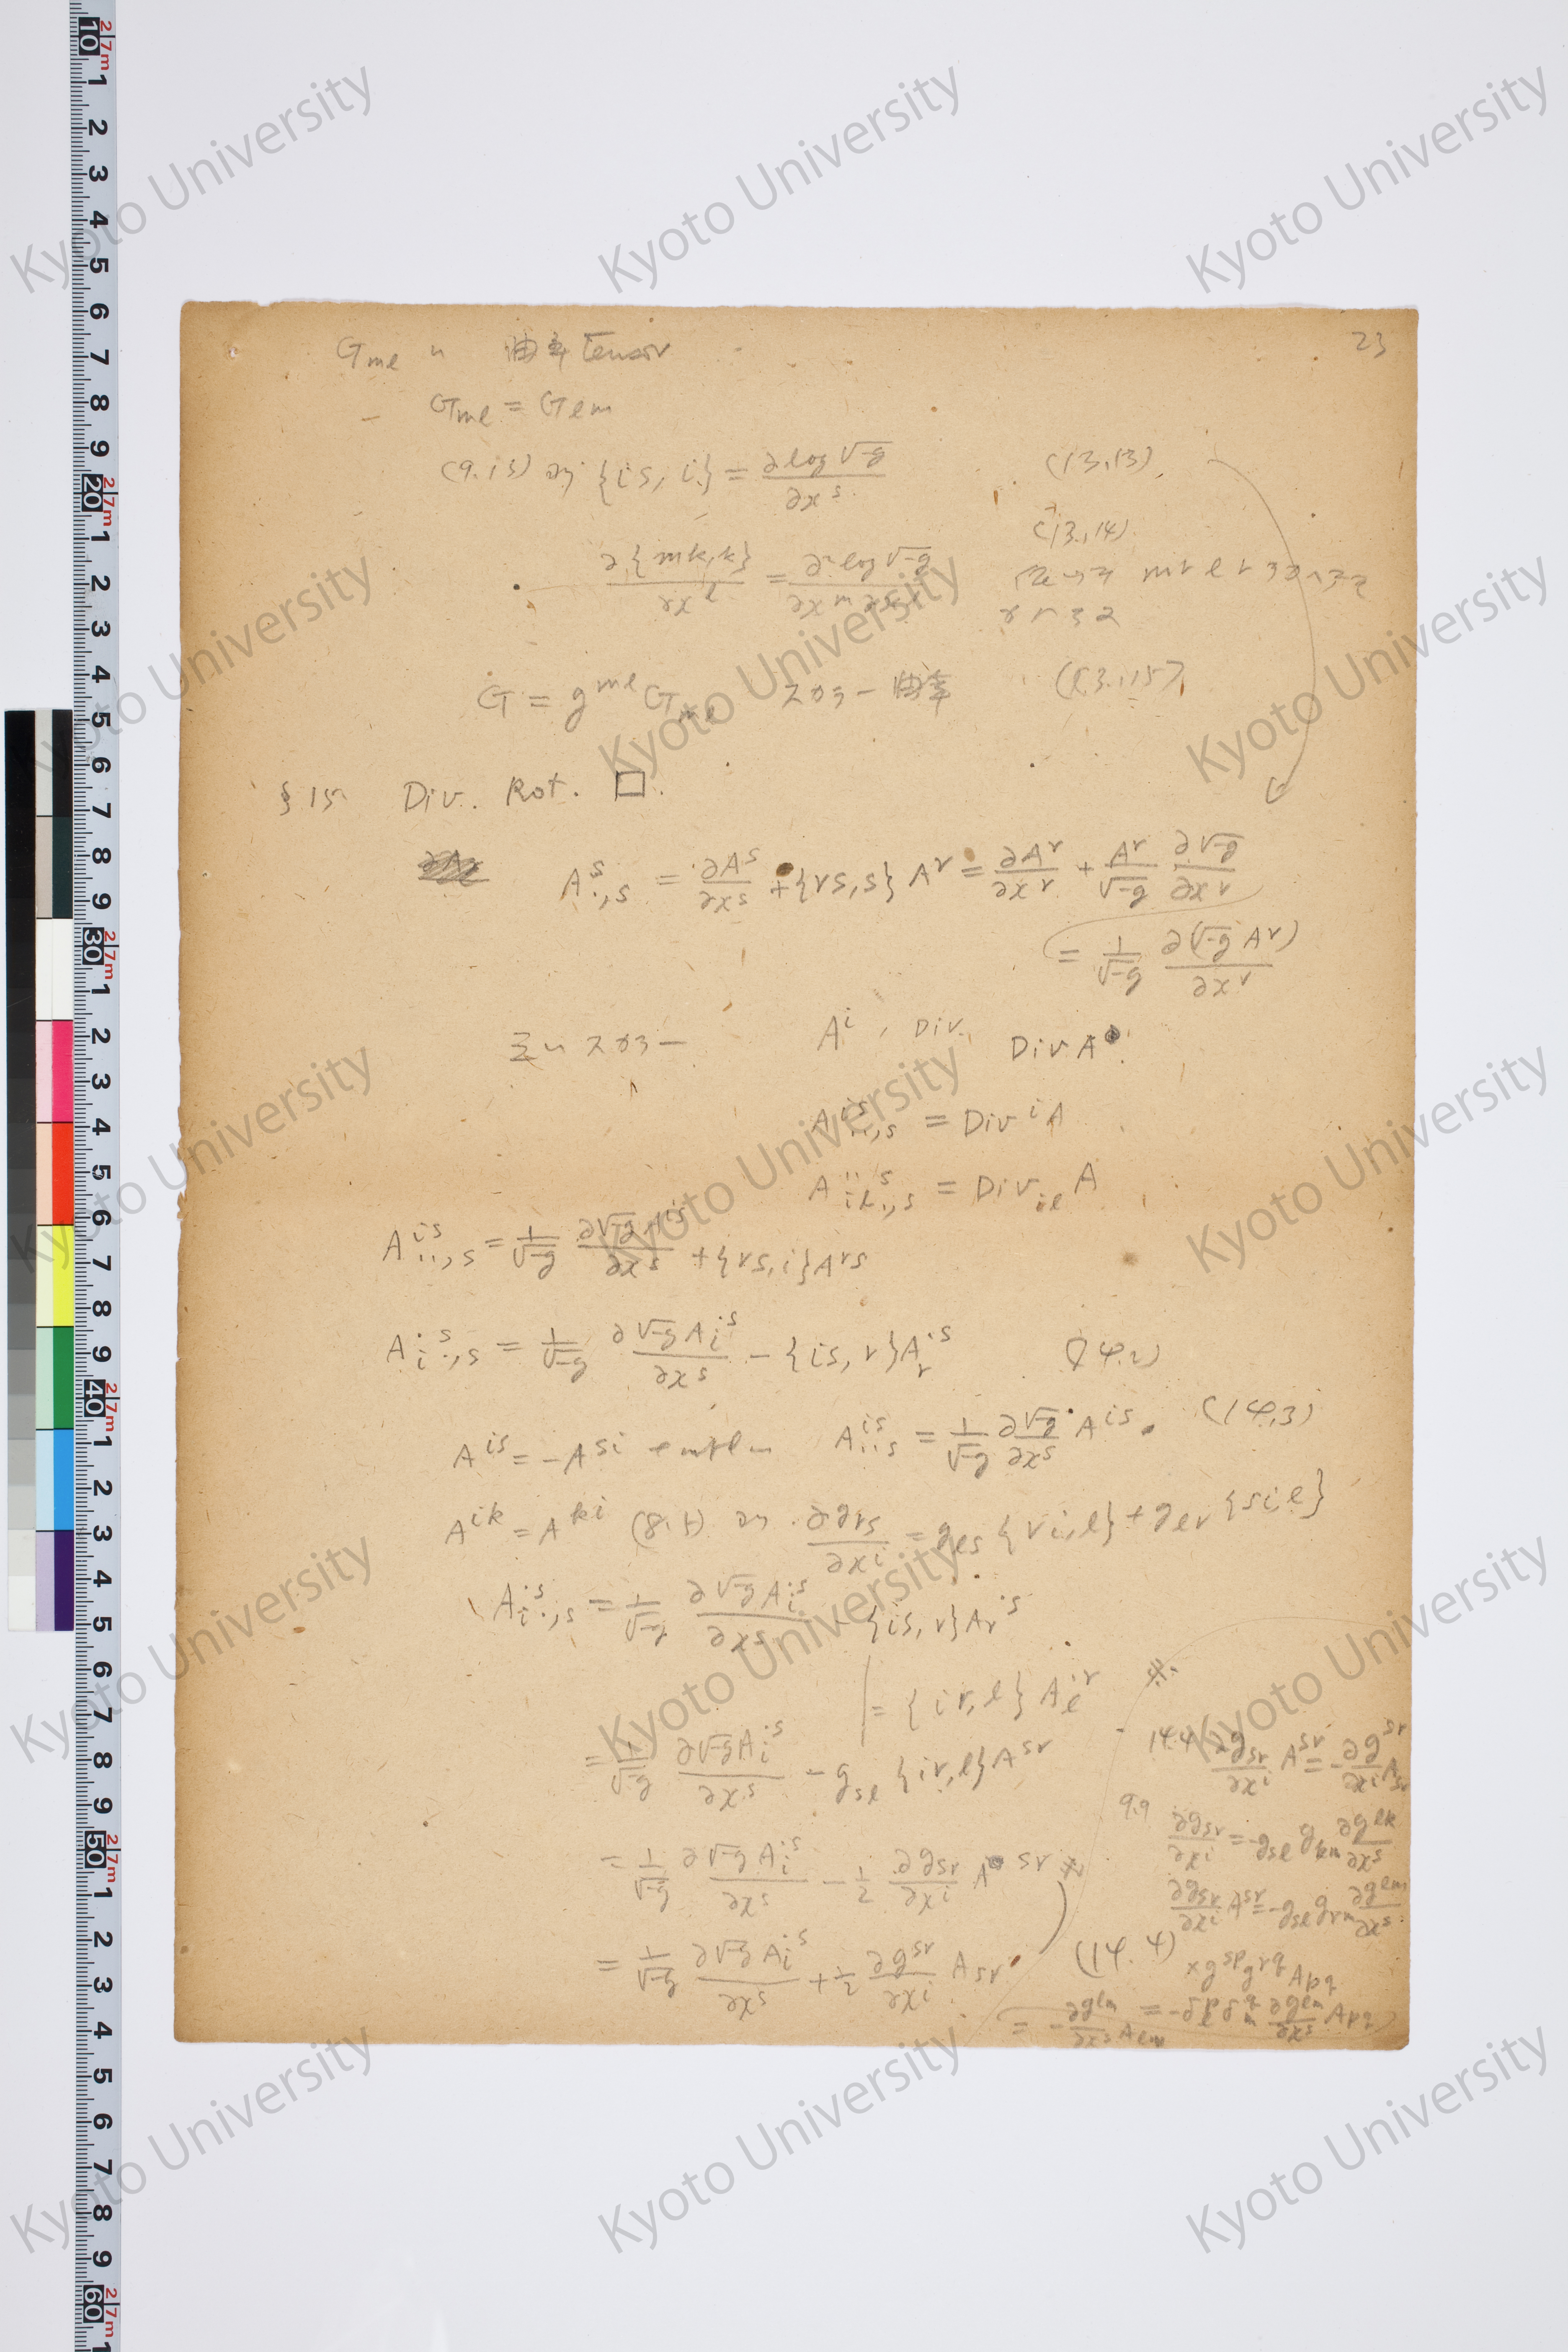 23
G_{ml} ハ 曲率 Tensor
G_{ml} = G_{lm}
(9.13) ヨリ {is, i} = ∂log√-g / ∂x^s (13,13)
∂{mk,k} / ∂x^l = ∂²log√-g / ∂x^m ∂x^l (13,14)
G = g^{ml} G_{ml} スカラー曲率 (13.15)
§15 Div. Rot. □.
A^s_{.,s} = ∂A^s/∂x^s + {rs,s} A^r = ∂A^r/∂x^r + A^r/√-g ∂√-g/∂x^r
= 1/√-g ∂(√-g A^r)/∂x^r
スカラー A^i, Div. Div A
A^{is}_{..,s} = Div^i A
A_{ik.,s}^{..s} = Div_{il} A
A^{is}_{..,s} = 1/√-g ∂√-g A^{is}/∂x^s + {rs,i} A^{rs}
A_i^{.s}_{.,s} = 1/√-g ∂√-g A_i^{.s}/∂x^s - {is, r} A_r^{.s} (14.2)
A^{is} = -A^{si} A^{is}_{..s} = 1/√-g ∂√-g/∂x^s A^{is} (14,3)
A^{ik} = A^{ki} (8.1) ヨリ ∂g_{rs}/∂x^i = g_{ls} {ri,l} + g_{lr} {si,l}
A_i^{.s}_{.,s} = 1/√-g ∂√-g A_i^{.s}/∂x^s - {is, r} A_r^{.s}
= {ir, l} A_l^{.r}
= 1/√-g ∂√-g A_i^{.s}/∂x^s - g_{sl} {ir,l} A^{sr}
= 1/√-g ∂√-g A_i^{.s}/∂x^s - 1/2 ∂g_{sr}/∂x^i A^{sr} ※
= 1/√-g ∂√-g A_i^{.s}/∂x^s + 1/2 ∂g^{sr}/∂x^i A_{sr} (14.4)
※
14.4 ∂g_{sr}/∂x^i A^{sr} = -∂g^{sr}/∂x^i A_{sr}
9.9 ∂g_{sr}/∂x^i = -g_{sl} g_{km} ∂g^{lk}/∂x^s
∂g_{sr}/∂x^i A^{sr} = -g_{sl} g_{rm} ∂g^{lm}/∂x^s
×g^{sp} g^{rq} A_{pq}
= -δ^p_l δ^q_m ∂g^{lm}/∂x^s A_{pq}
= -∂g^{lm}/∂x^s A_{lm}
Kyoto University